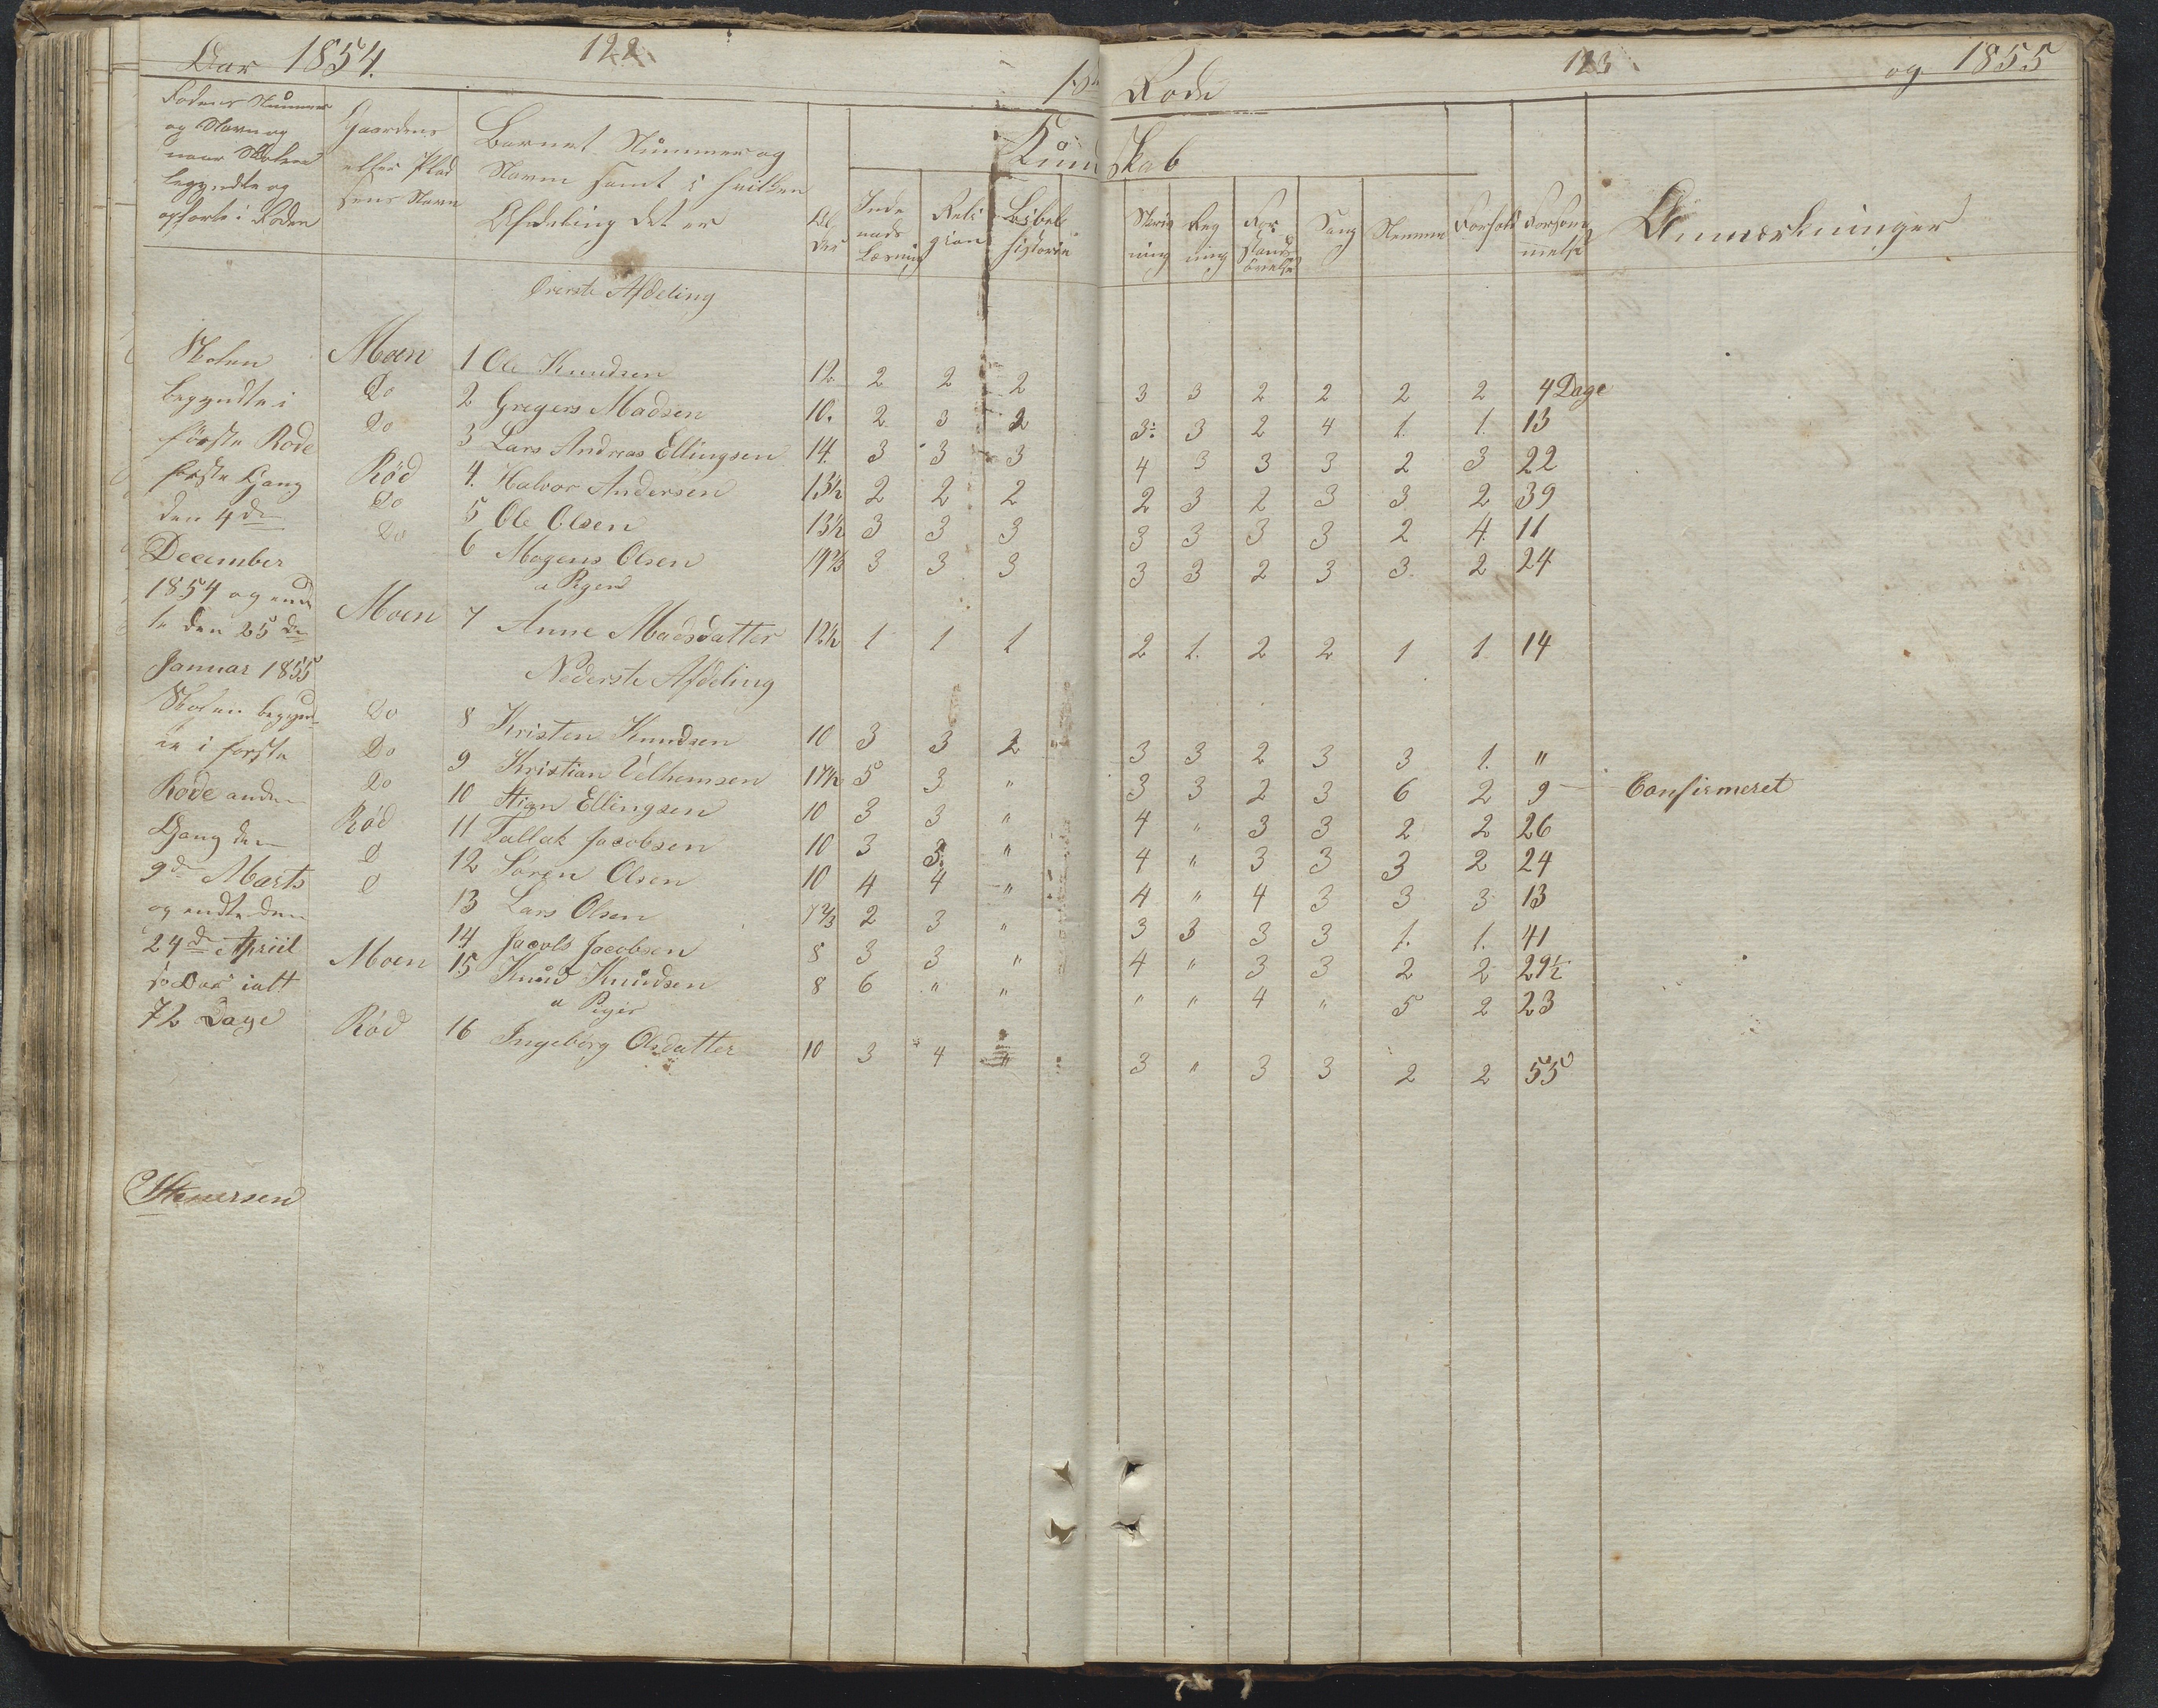 Aar 1854. 122
1ste Rode 123 og 1855
Rodens Nummer
og Navn og
naar Skolen
begyndte og
ophørte i Roden
Gaardens
eller Plad
sens Navn
Barnets Nummer og
Navn samt i hvilken
Afdeling det er
Al
der
Kund skab
Inde
nads
Læsning
Reli
gion
Bibel
historie
Skriv
ning
Reg
ning
For
stands
øvelse
Sang
Nemme
Forhold
Forsøm
melse
Anmærkninger
Øverste Afdeling
Skolen
begyndte i
første Rode
første Gang
den 4de
December
1854 og end
te den 25de
Januar 1855
Skolen begynd
te i første
Rode anden
Gang den
9de Marts
og endte den
24de April
ialt
72 Dage
Moen 1 Ole Knudsen 12 2 2 2 3 3 2 2 2 2 4 Dage
Do 2 Gregers Madsen 10. 2 3 2 3: 3 2 4 1. 1. 13
Do 3 Lars Andreas Ellingsen 14. 3 3 3 4 3 3 3 2 3 22
Rød 4. Halvor Andersen 13½ 2 2 2 2 3 2 3 3 2 39
Do 5 Ole Olsen 13½ 3 3 3 3 3 3 3 2 4. 11
Do 6 Mogens Olsen 3 3 3 3 3 2 3 3. 2 24
a Pigen
Moen 7 Anne Madsdatter 12½ 1 1 1 2 1. 2 2 1 1 14
Nederste Afdeling
Do 8 Kristen Knudsen 10 3 3 2 3 3 2 3 3 1. "
Do 9 Kristian Velhemsen 5 3 " 3 3 2 3 6 2 9 — Confirmeret
Do 10 Stian Ellingsen 10 3 3 " 4 " 3 3 2 2 26
Rød 11 Tallak Jacobsen 10 3 3. " 4 " 3 3 3 2 24
D 12 Søren Olsen 10 4 4 " 4 " 4 3 3 3 13
D 13 Lars Olsen 7⅔ 2 3 " 3 3 3 3 1. 1. 41
14 Jacob Jacobsen 8 3 3 " 4 " 3 3 2 2 29½
Moen 15 Knud Knudsen 8 6 " " " " 4 " 5 2 23
a Piger
Rød 16 Ingeborg Olsdatter 10 3 4 " 3 " 3 3 2 2 55
Stenersen